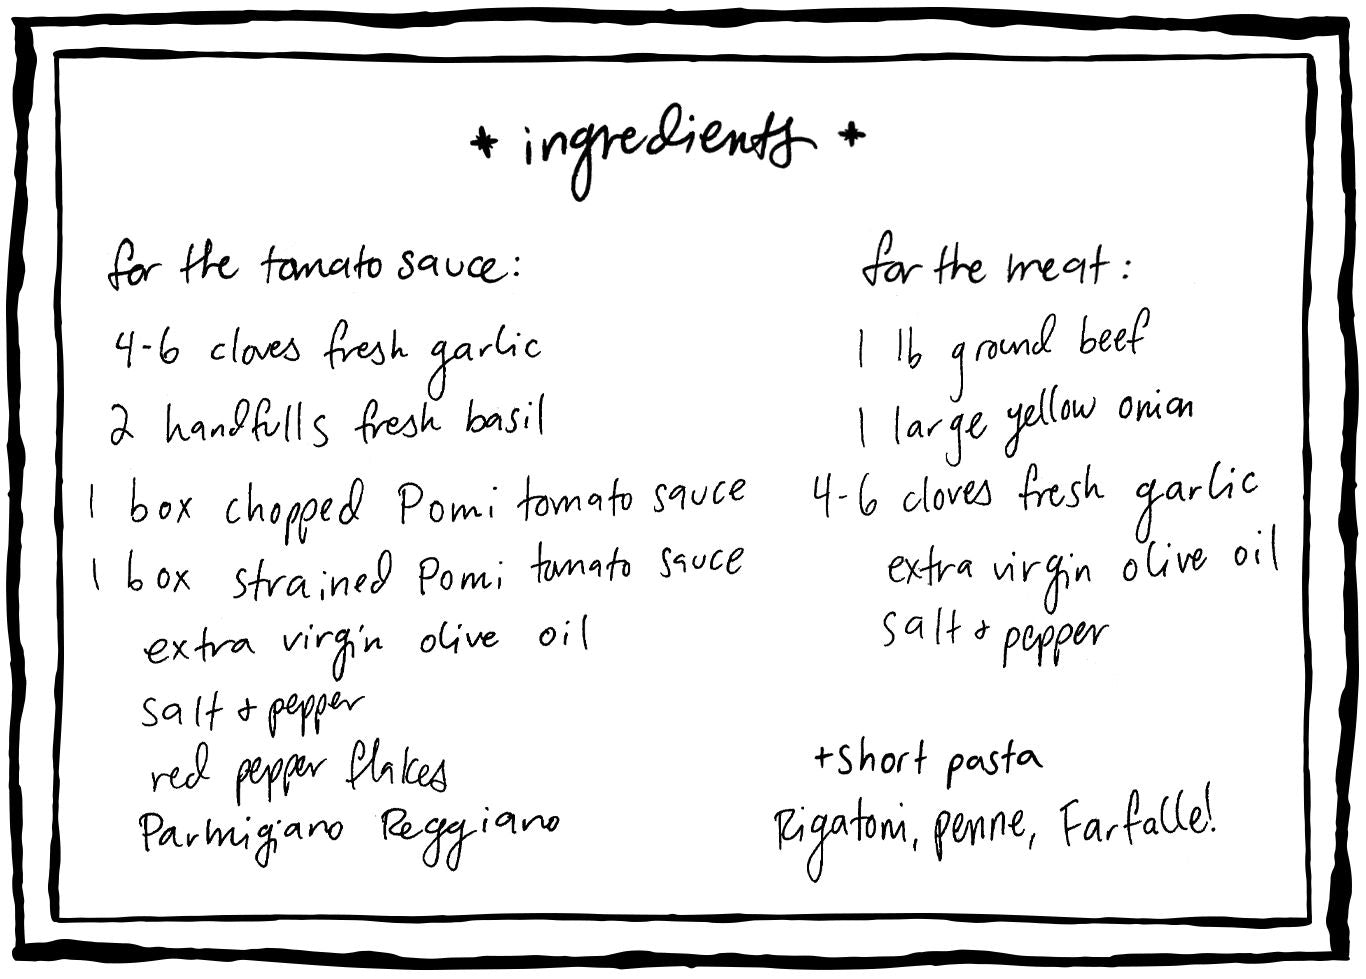 * ingredients *
for the tomato sauce:
4-6 cloves fresh garlic
2 handfulls fresh basil
1 box chopped Pomi tomato sauce
1 box strained Pomi tomato sauce
extra virgin olive oil
salt & pepper
red pepper flakes
Parmigiano Reggiano
for the meat:
1 lb ground beef
1 large yellow onion
4-6 cloves fresh garlic
extra virgin olive oil
salt & pepper
+short pasta
Rigatoni, penne, Farfalle!